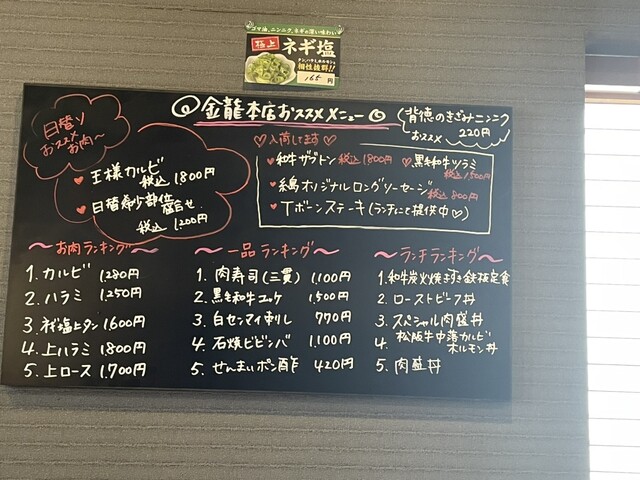 ゴマ油、ニンニク、ネギの深い味わい
極上 ネギ塩
タン、ハラミ、ホルモンと
相性抜群!!
165円
金龍本店おススメメニュー
背徳のきざみニンニク
おススメ 220円
日替り
おススメ
お肉〜
♥ 王様カルビ
税込 1,800円
♥ 日替希少部位
盛合せ
税込 1,200円
♡入荷してます♡
♥ 和牛ザブトン 税込1,800円 ♥ 黒毛和牛ツラミ
税込1,500円
オリジナルロングソーセージ 税込800円
♥ Tボーンステーキ(ランチにて提供中♡)
〜お肉ランキング〜
1. カルビ 1,280円
2. ハラミ 1,250円
3. ネギ塩上タン 1,600円
4. 上ハラミ 1,800円
5. 上ロース 1,700円
〜一品ランキング〜
1. 肉寿司(三貫) 1,100円
2. 黒毛和牛ユッケ 1,500円
3. 白センマイ刺し 770円
4. 石焼ビビンバ 1,100円
5. せんまいポン酢 420円
〜ランチランキング〜
1. 和牛炭火焼きすき鉄板定食
2. ローストビーフ丼
3. スペシャル肉盛丼
4. 松阪牛中落カルビ
ホルモン丼
5. 肉盛丼